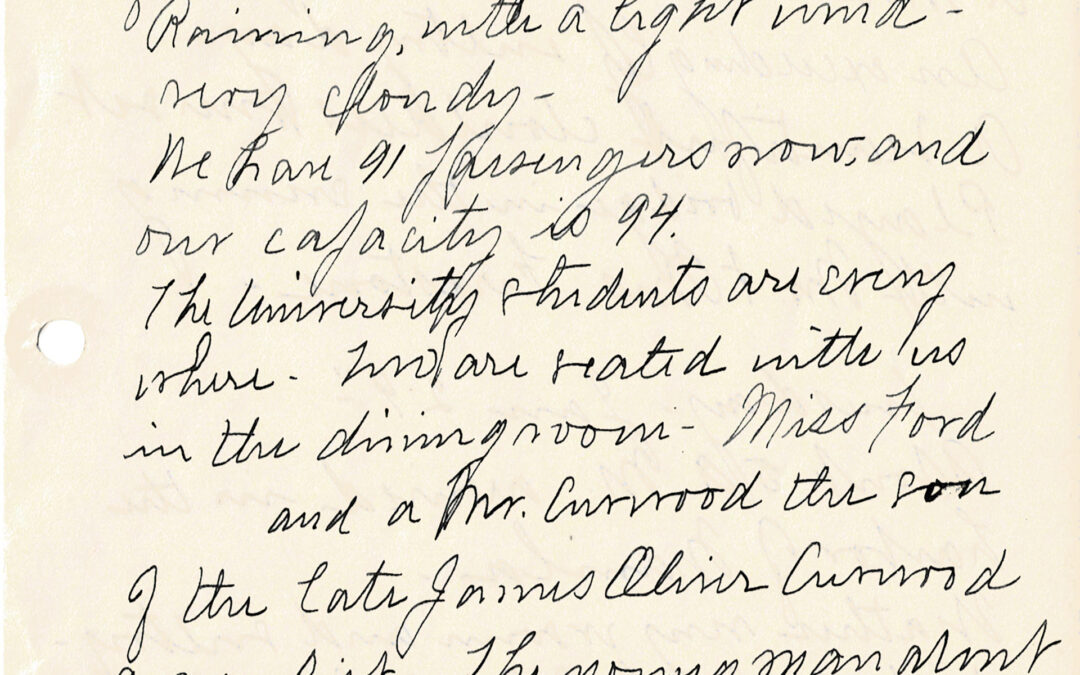 Raining, with a light wind -
very cloudy -
We have 91 passengers now, and
our capacity is 94.
The University students are every
where - Two are seated with us
in the dining room - Miss Ford
and a Mr. Curwood the son
of the late James Oliver Curwood
The young man about